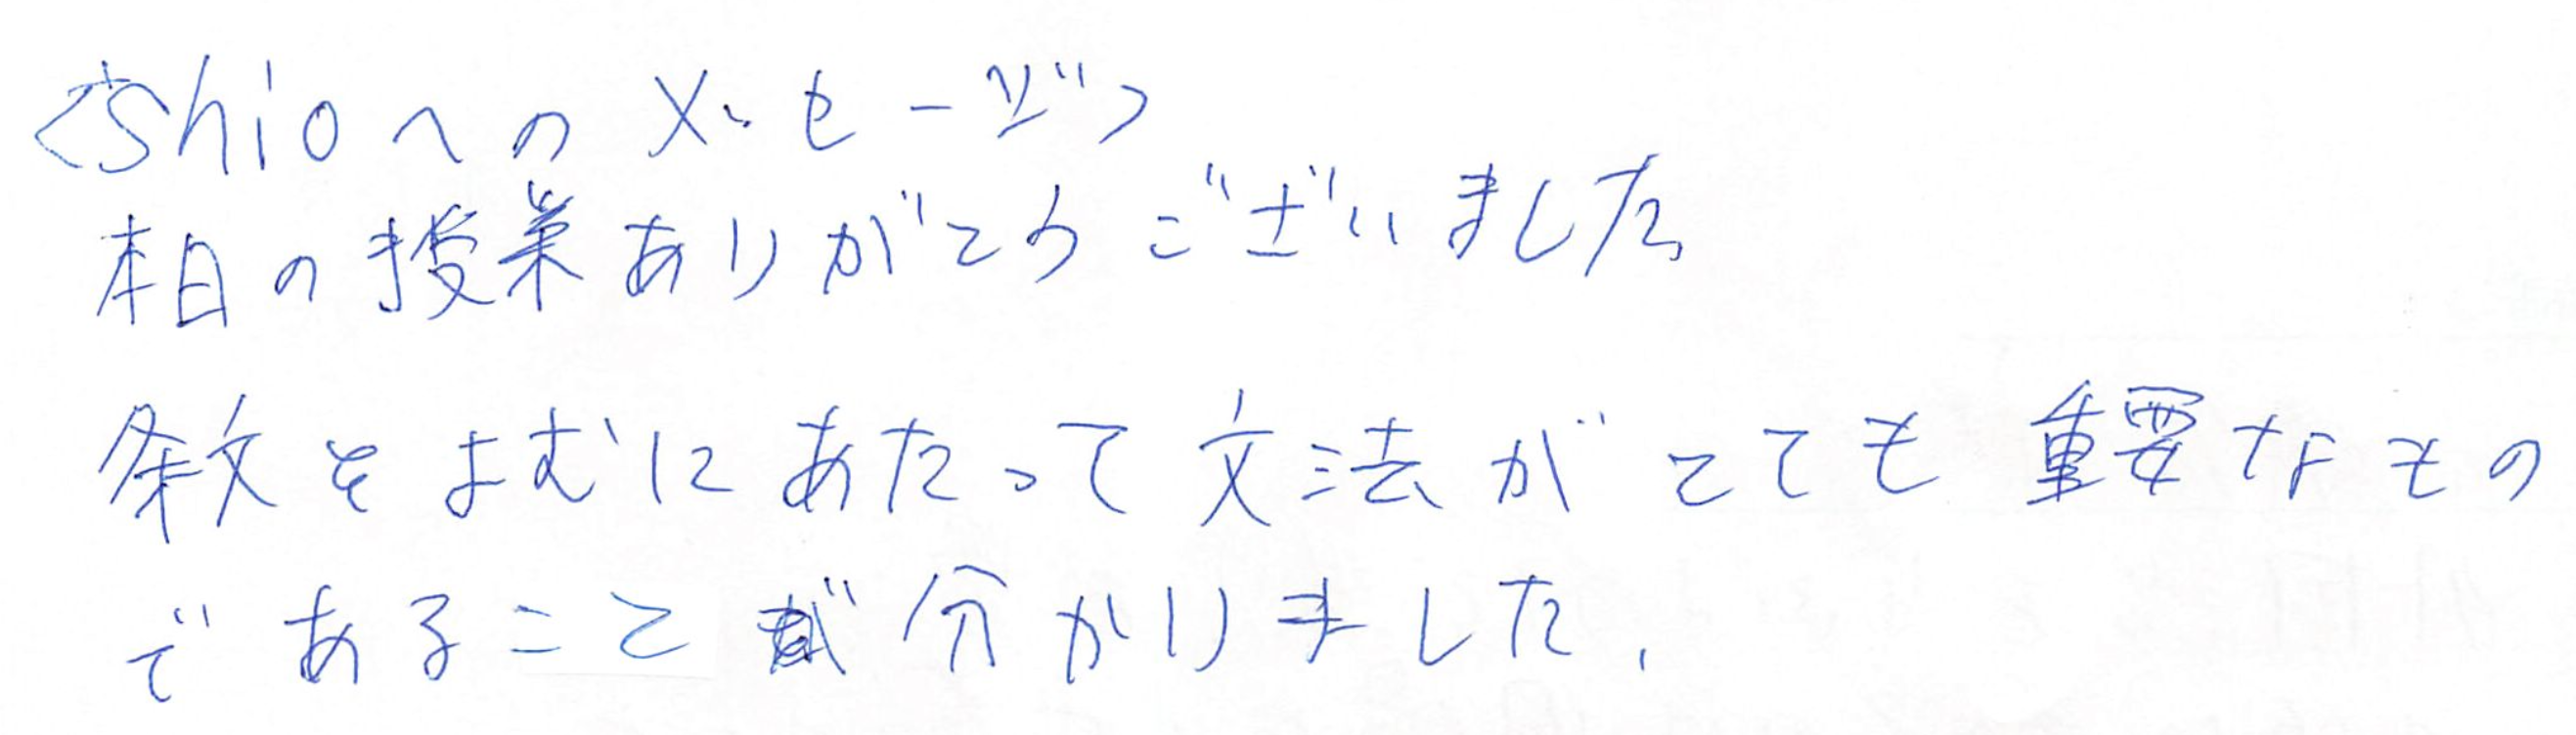 <shioへのメッセージ>
本日の授業ありがとうございました
条文をよむにあたって文法がとても重要なもの
であることが分かりました.